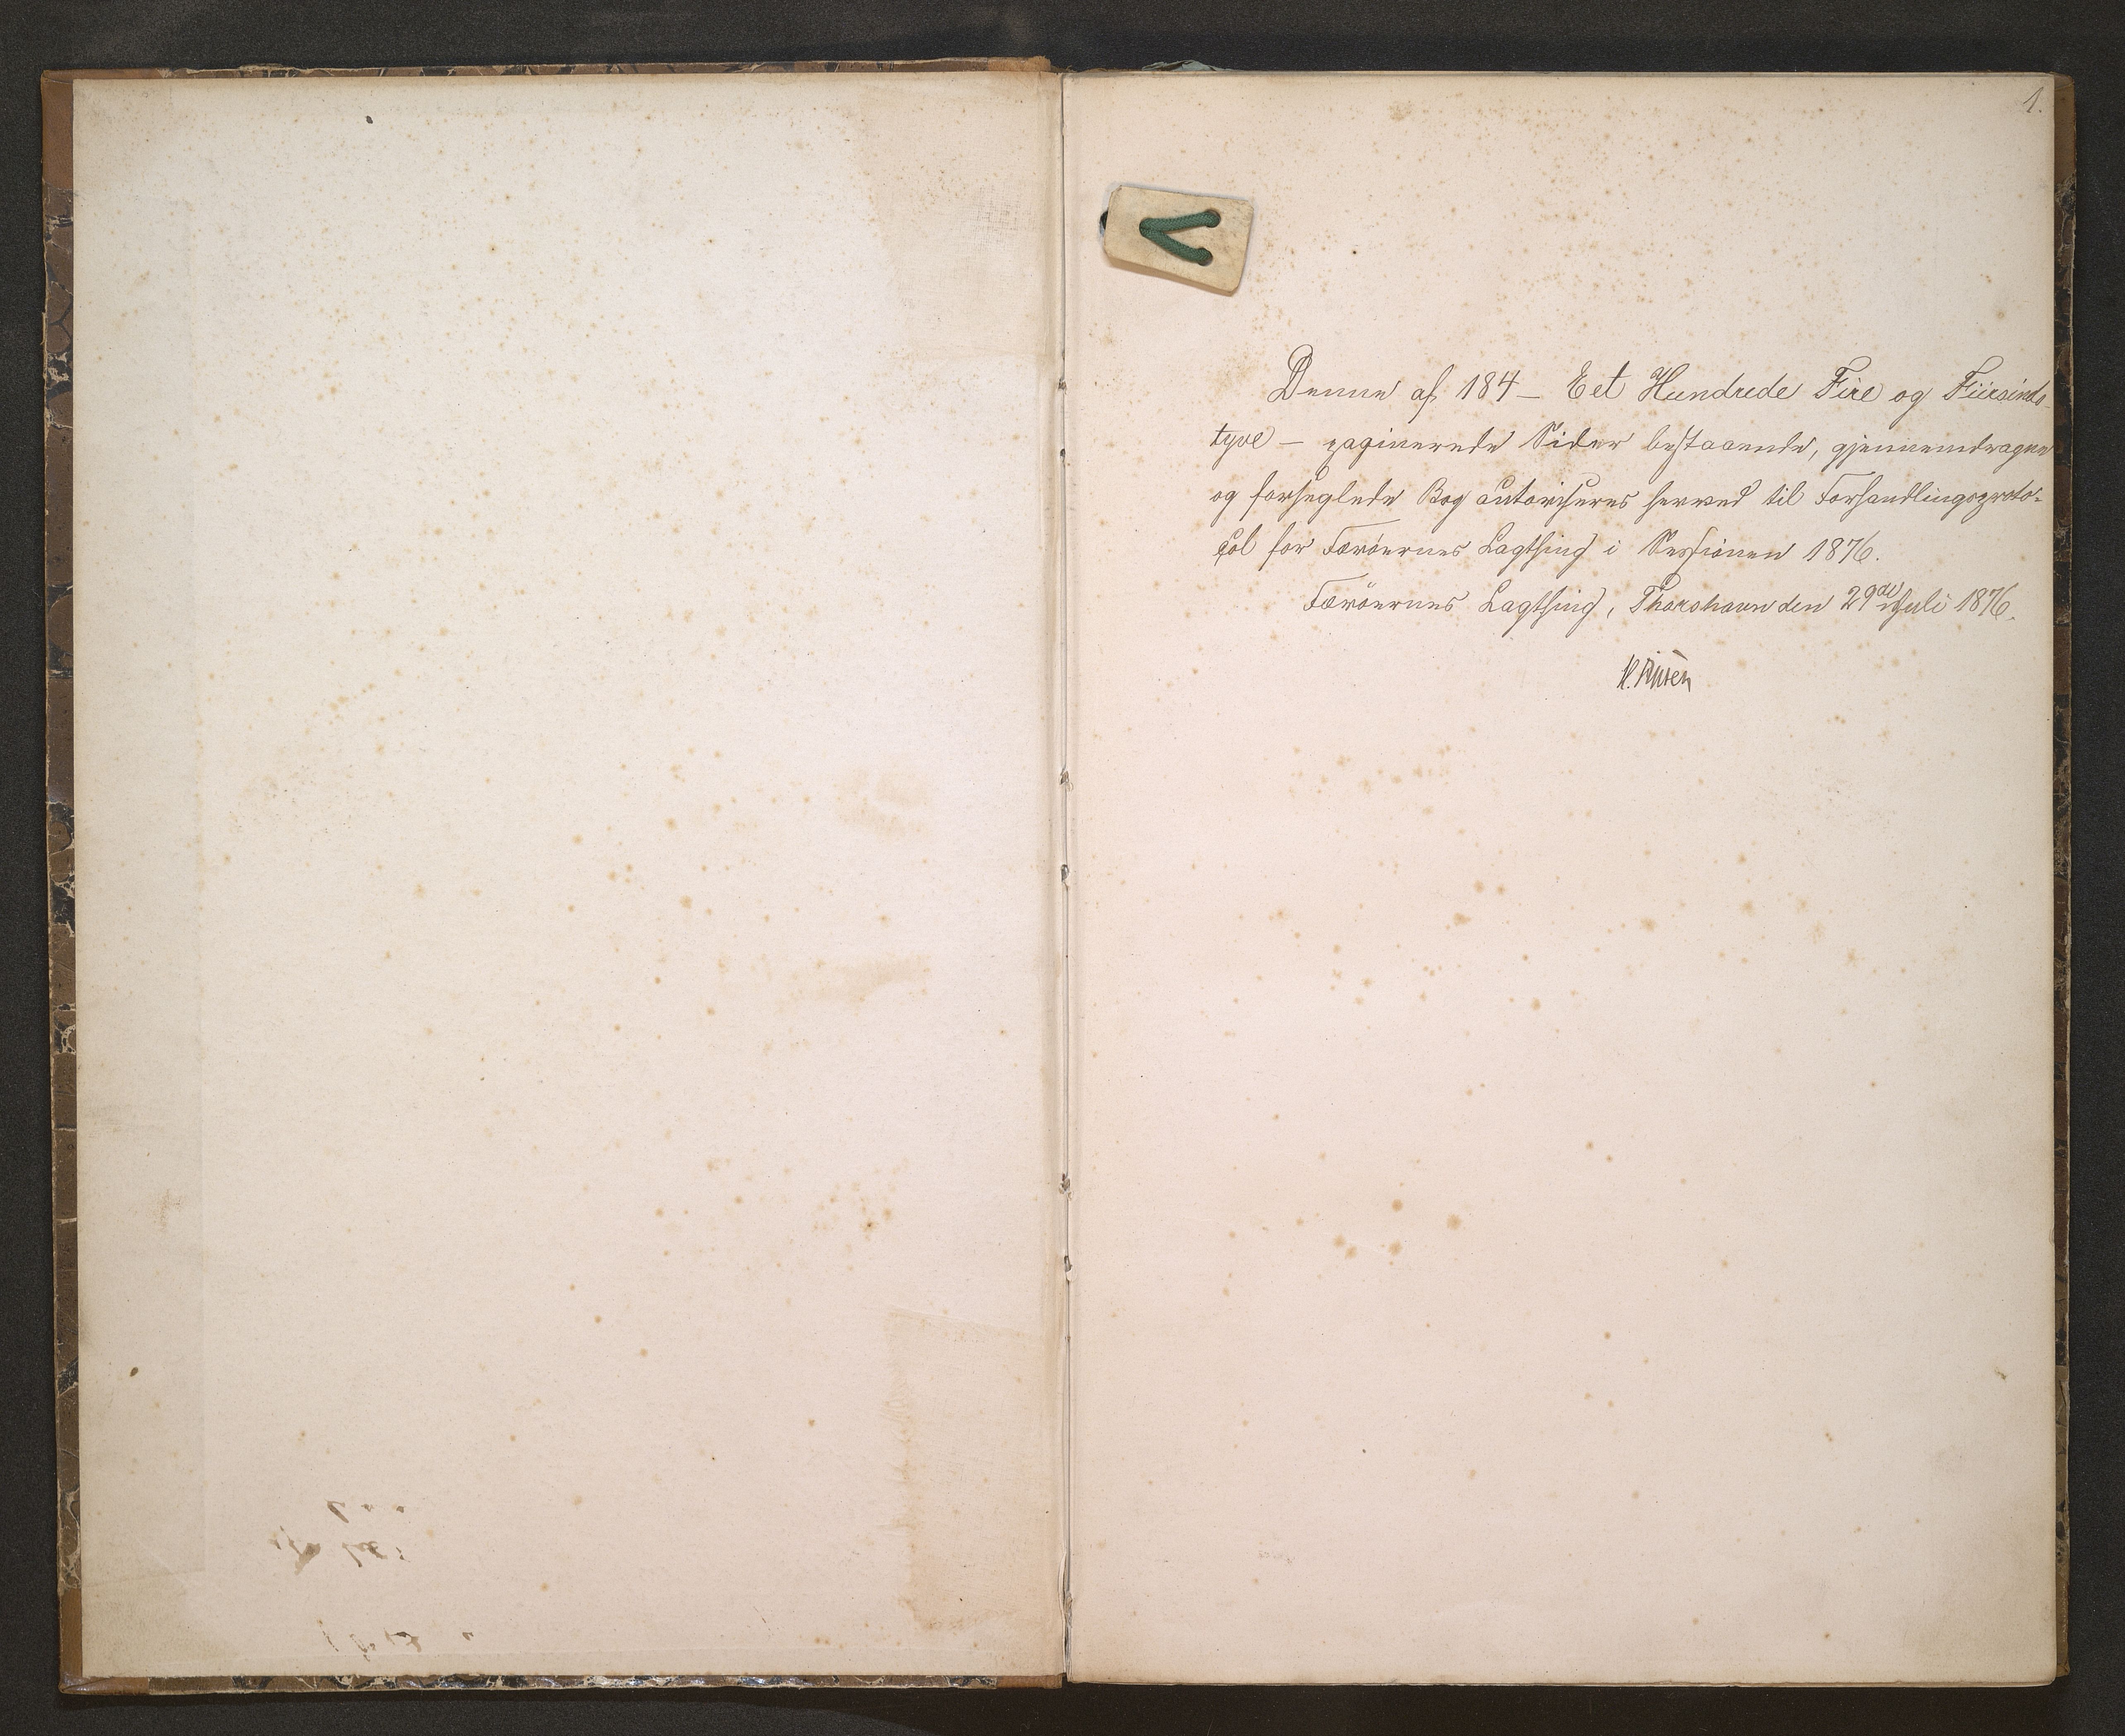 1.
Denne af 184 – Eet Hundrede Fire og Fiirsinds-
tyve – paginerede Sider bestaaende, gjennemdragne
og forseglede Bog autoriseres herved til Forhandlingsproto-
col for Færöernes Lagthing i Sessionen 1876.
Færöernes Lagthing, Thorshavn den 29de Juli 1876.
H. Finsen